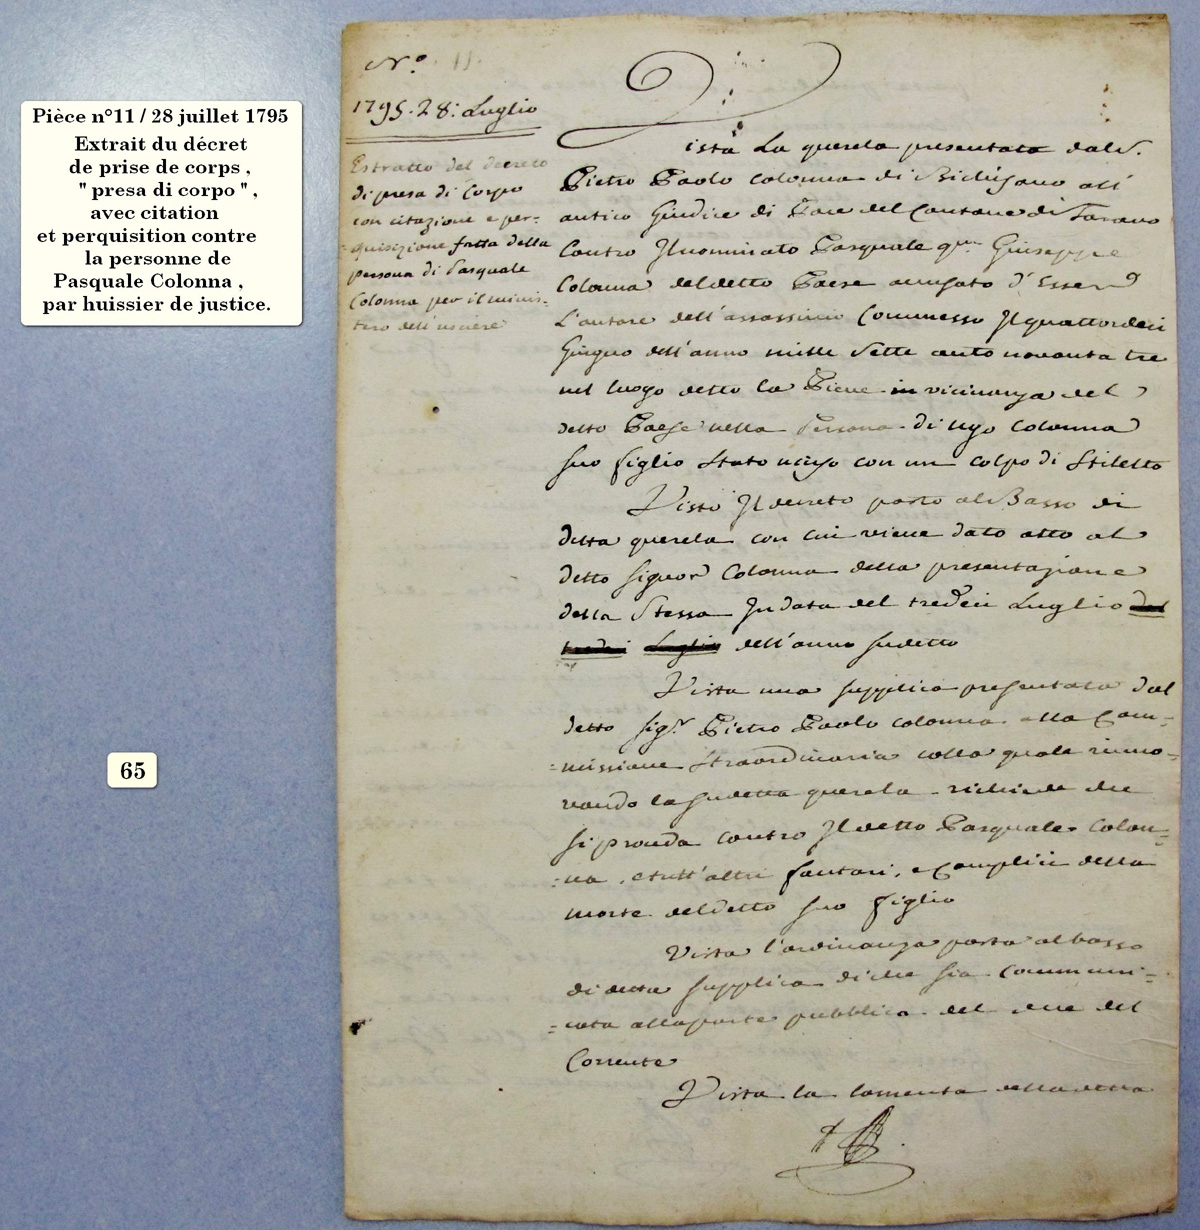 Pièce n°11 / 28 juillet 1795
Extrait du décret
de prise de corps ,
" presa di corpo " ,
avec citation
et perquisition contre
la personne de
Pasquale Colonna ,
par huissier de justice.
65
N.º 11.
1795. 28: Luglio
Estratto del decreto
di presa di Corpo
con citazione e per-
=quisizione fatta della
persona di Pasquale
Colonna per il minis-
tero dell'usciere
Vista La querela presentata dal S.
Pietro Paolo Colonna di Bichisano all'
antico Giudice di Pace del Cantone di Taravo
Contro Il nominato Pasquale q.m Giuseppe
Colonna del detto Paese accusato d'Esser
L'autore dell'assassinio Commesso Il quattordeci
Giugno dell'anno mille Sette cento novanta tre
nel luogo detto la Pieve in vicinanza del
detto Paese nella Persona di Ugo Colonna
suo figlio Stato ucciso con un colpo di Stiletto
Visto Il decreto posto al Basso di
detta querela con cui viene dato atto al
detto Signor Colonna della presentazione
della Stessa In data del tredeci Luglio del
tredeci Luglio dell'anno sudetto
Vista una supplica presentata dal
detto Sig.r Pietro Paolo Colonna alla Com-
=missione Straordinaria colla quale rinno-
vando la sudetta querela richiede che
si proceda contro Il detto Pasquale Colon-
=na, e tutt'altri fautori, e Complici della
morte del detto suo figlio
Vista l'ordinanza posta al basso
di detta supplica di che sia Communi-
=cata alla parte pubblica del due del
Corrente
Vista la lamenta della detta